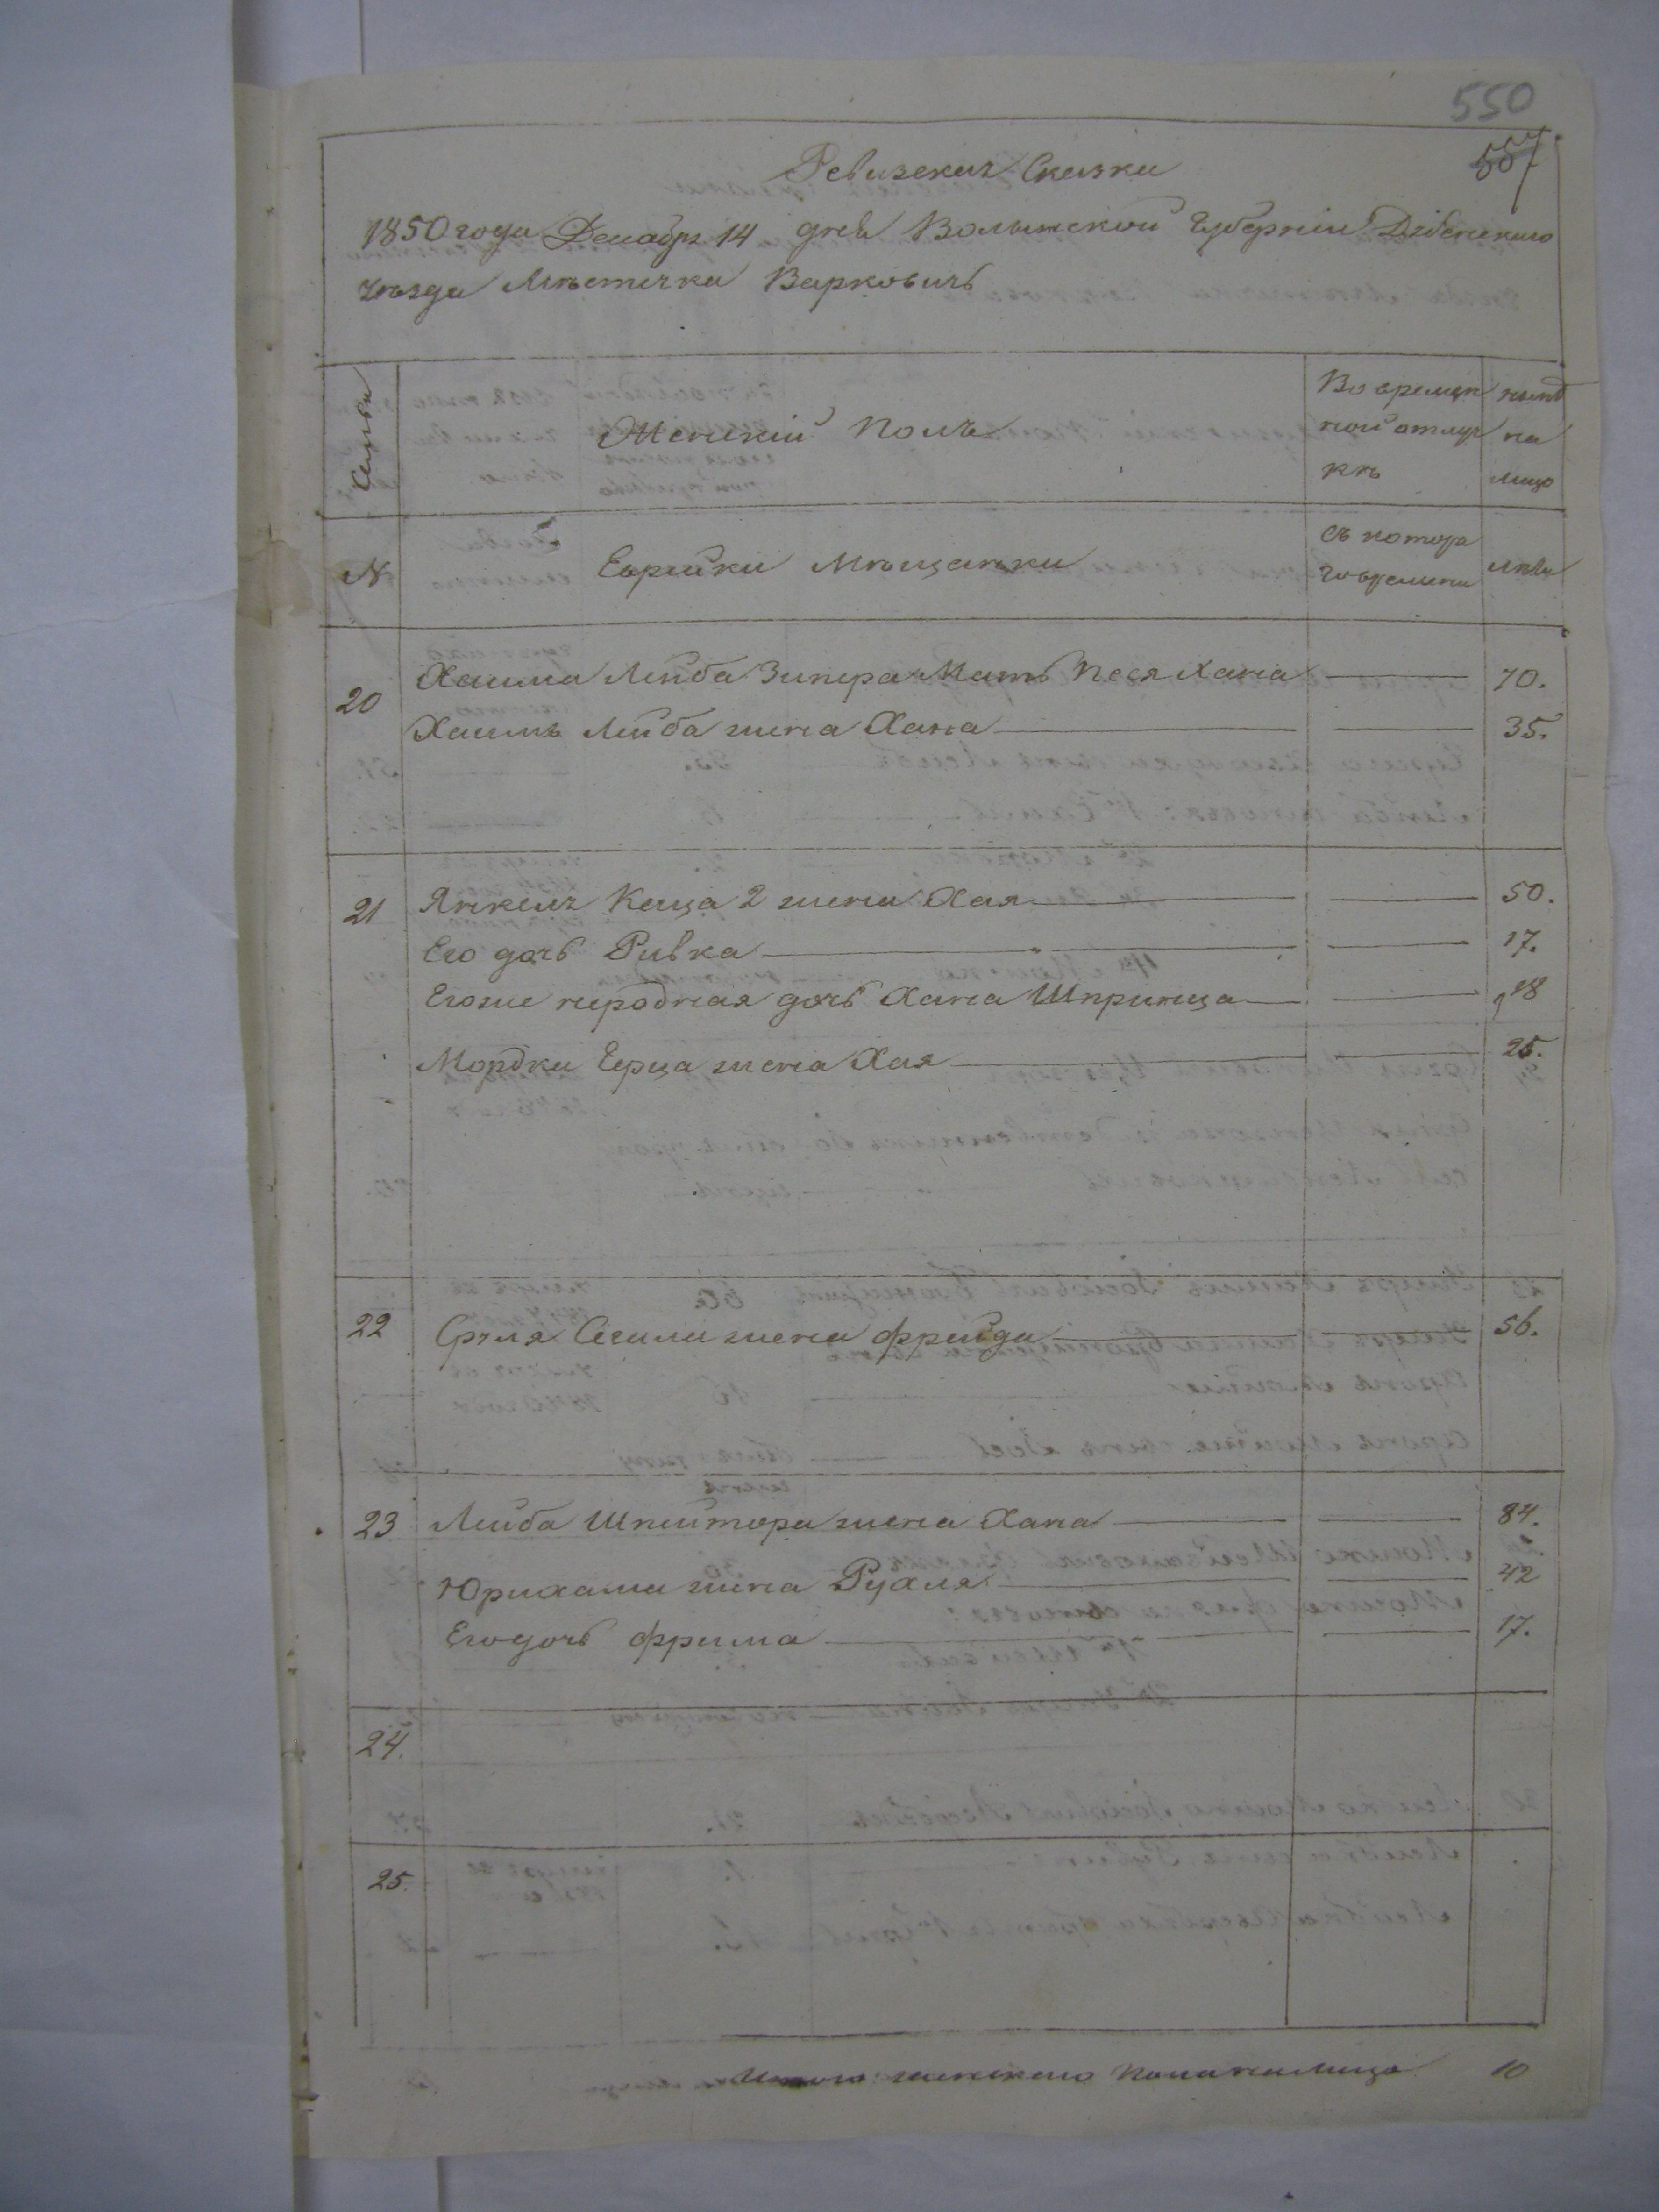 550
557
Ревизская Сказка
1850 года Декабря 14 дня Волынской Губерніи Дубенскаго
Уѣзда Мѣстечка Варковичь
Семьи
Женскій Полъ
Во времен
ной отлуч
кѣ
нынѣ
на
лицо
№
Еврейки Мѣщанки
съ котора
го времени
лѣта
20 Хаима Лейба Зипера Мать Песя Хана 70.
Хаимъ Лейба жена Хана 35.
21 Янкеля Каца 2 жена Хая 50.
Его дочь Ривка 17.
Егоже неродная дочь Хана Шпринца 18
Мордки Герца жена Хая 25.
22 Сруля жена Фрейда 56.
23 Лейба жена Хана 84.
жена Рухля 42
Его дочь Фрима 17.
24.
25.
Итого женскаго пола налицо 10